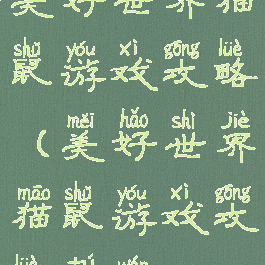 美好世界猫
shǔ yóu xì gōng lüè
鼠游戏攻略
měi hǎo shì jiè
（美好世界
māo shǔ yóu xì gōng
猫鼠游戏攻